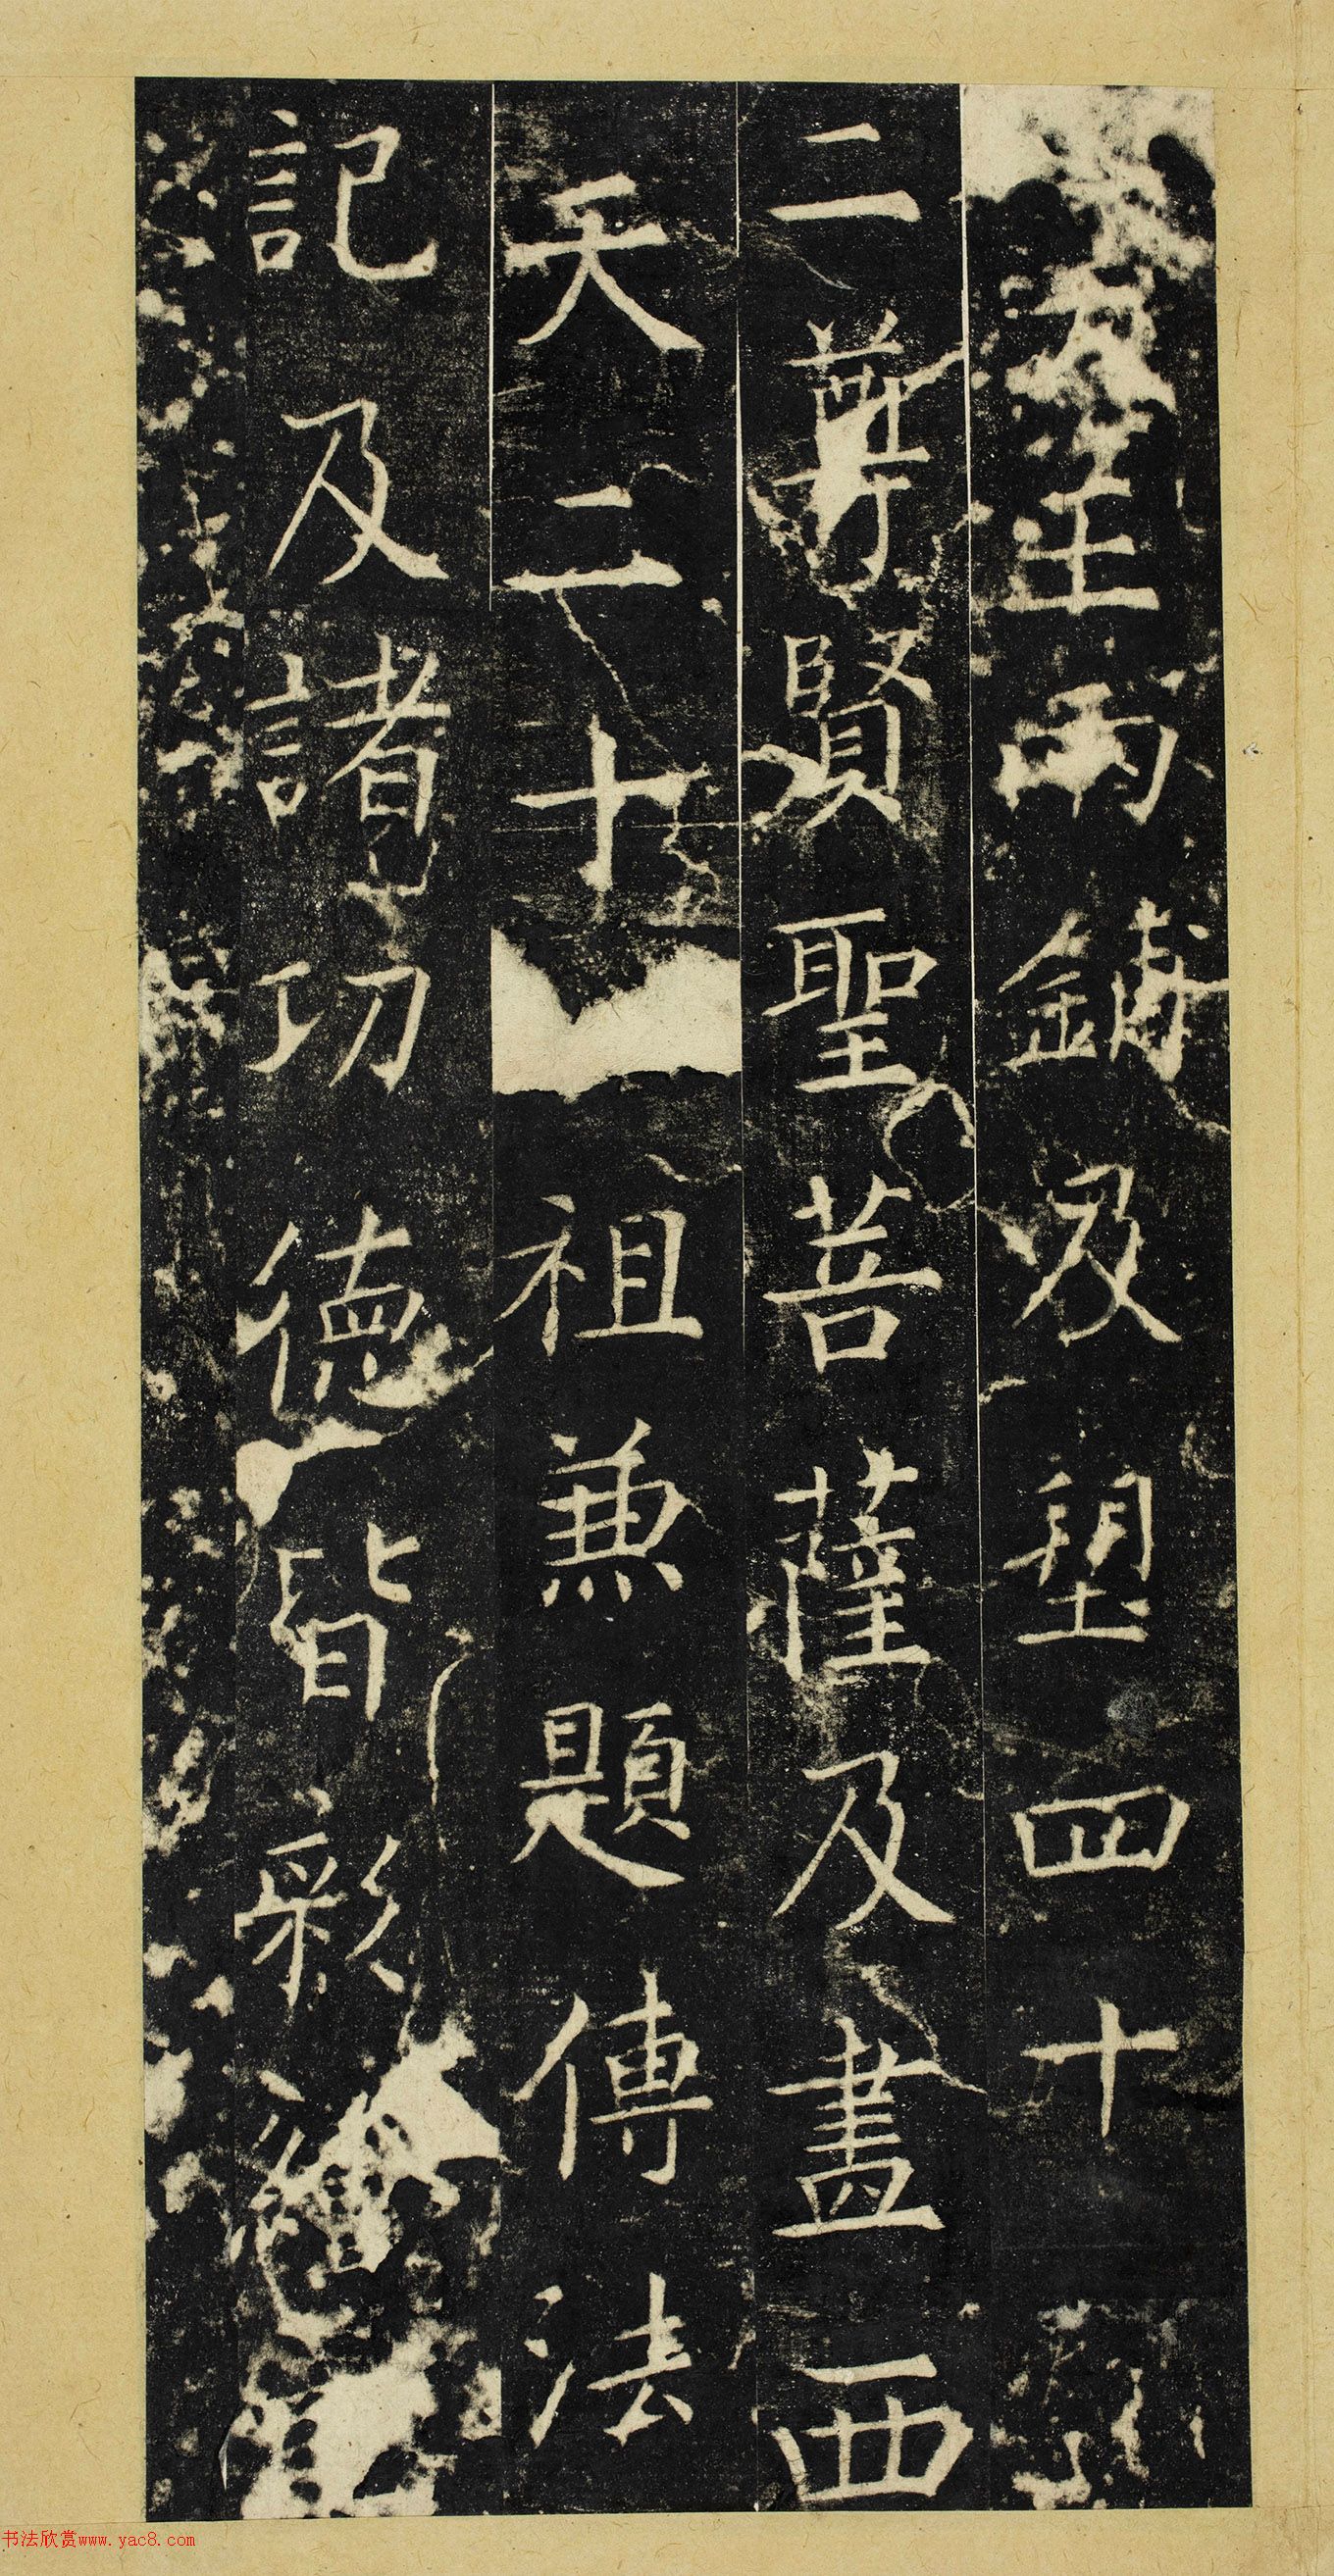 王両鋪及塑四十
二尊賢聖菩薩及畫西
天二十祖兼題傳法
記及諸功德皆彩繪
书法欣赏www.yac8.com